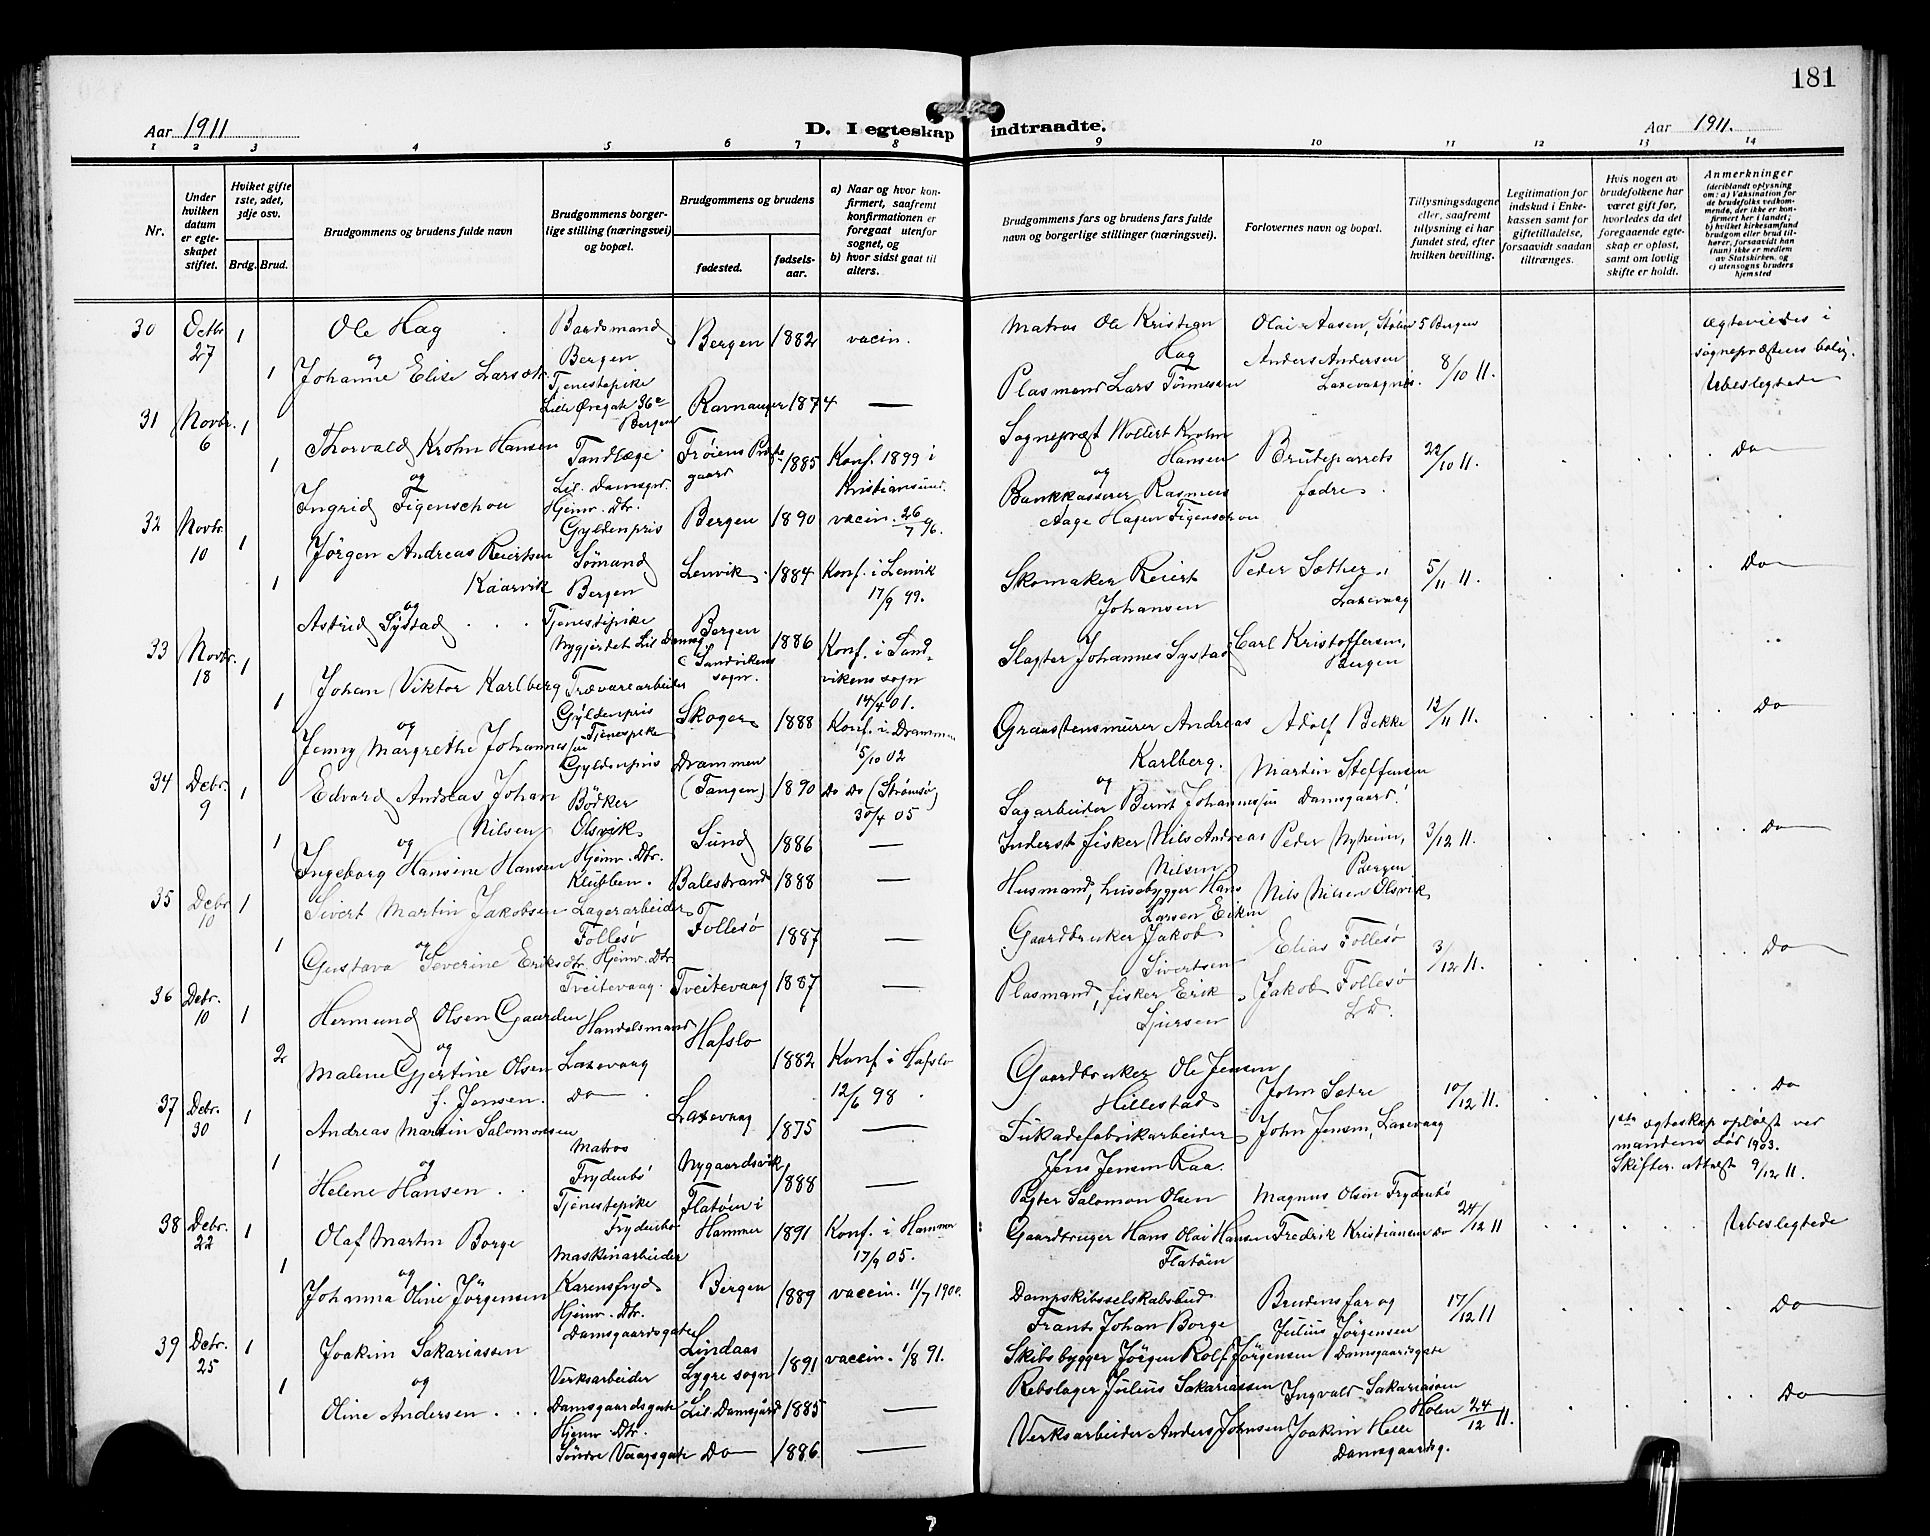 181
Aar 1911
D. I egteskap indtraadte.
Aar 1911.
1 2 3 4 5 6 7 8 9 10 11 12 13 14
Nr.
Under hvilken datum er egteskapet stiftet.
Hviket gifte 1ste, 2det, 3dje osv.
Brdg. Brud.
Brudgommens og brudens fulde navn
Brudgommens borgerlige stilling (næringsvei) og bopæl.
Brudgommens og brudens
fødested.
fødselsaar.
a) Naar og hvor konfirmert, saafremt konfirmationen er foregaat utenfor sognet, og
b) hvor sidst gaat til alters.
Brudgommens fars og brudens fars fulde navn og borgerlige stillinger (næringsvei).
Forlovernes navn og bopæl.
Tillysningsdagene eller, saafremt tillysning ei har fundet sted, efter hvilken bevilling.
Legitimation for indskud i Enkekassen samt for giftetilladelse, forsaavidt saadan tiltrænges.
Hvis nogen av brudefolkene har været gift før, hvorledes da det foregaaende egteskap er opløst, samt om lovlig skifte er holdt.
Anmerkninger
(deriblandt oplysning om: a) Vaksination for de brudefolks vedkommende, der ikke er konfirmert her i landet; b) hvilket kirkesamfund brudgom eller brud tilhører, forsaavidt han (hun) ikke er medlem av Statskirken, og c) utensogns bruders hjemsted
30 Octbr. 27 1 Ole Hag Baadsmand Bergen Bergen 1882 vacin. Matros Ole Kristian Hag Olai Aasen, Stølen 5 Bergen 8/10 11. Ægteviedes i sognepræstens bolig.
og
1 Johanne Elise Larsdtr. Tjenestepike Lille Øregate 36 Bergen Ravnanger 1874 — Plasmand Lars Tönnesen Anders Andersen Laxevaagnæs. Ubeslegtede
31 Novbr. 6 1 Thorvald Krohn Hansen Tandlæge Lil. Damsgrd. Frøiens Prestegaard 1885 Konf. 1899 i Kristiansund. Sogneprest Wollert Krohn Hansen Brudeparrets fædre. 22/10 11. Do
og
1 Ingrid Figenschou Hjemv. Dtr. Gyldenpris Bergen 1890 vacin. 26/7 96. Bankkasserer Rasmus Aage Hagen Figenschou
32 Novbr. 10 1 Jörgen Andreas Reiertsen Kaarvik Sömand Bergen Lenvik 1884 Konf. i Lenvik 17/9 99. Skomaker Reiert Johansen Peder Sæther, Laxevaag 5/11 11. Do
og
1 Astrid Systad Tjenestepike Nygjerdet Lil Damsg Bergen Sandvikens sogn. 1886 Konf. i Sandvikens sogn 14/4 01. Slagter Johannes Systad Carl Kristoffersen, Bergen
33 Novbr. 18 1 Johan Viktor Karlberg Trævarearbeider Gyldenpris Skoger 1888 Konf. i Drammen 5/10 02 Graastensmurer Andreas Karlberg. Adolf Bekke 12/11 11. Do
og
1 Jenny Margrethe Johannessen Tjenespike Gyldenpris Drammen (Tangen) 1890 Do Do (Strømsø) 30/4 05 Sagarbeider Bernt Johannessen Martin Steffensen Damsgaard.
34 Debr. 9 1 Edvard Andreas Johan Nilsen Bödker Olsvik Sund 1886 — Inderst fisker Nils Andreas Nilsen Peder Nyheim, Bergen 3/12 11. Do
og
1 Ingeborg Hansine Hansen Hjemv. Dtr. Balestrand 1888 — Husmand, husebygger Hans Larsen Eiken Nils Nilsen Olsvik
35 Debr 10 1 Sivert Martin Jakobsen Lagerarbeider Follesö Follesö 1887 — Gaardbruker Jakob Sivertsen Elias Follesö 3/12 11. Do
og
1 Gustava Severine Eriksdtr. Hjemv. Dtr. Tveitevaag. Tveitevaag 1887 — Plasmand, fisker Erik Sjursen Jakob Follesö
36 Debr. 10 1 Hermund Olsen Gaarden Handelsmand Laxevaag Hafslo 1882 Konf. i Hafslo 12/6 98. Gaardbruker Ole Jensen Hillestad John Sætre 10/12 11. Do
og
2 Malene Gjertine Olsen f. Jensen. Do Laxevaag 1875 — Sukadefabrikarbeider Jens Jensen Raa. John Jensen, Laxevaag 1ste ægteskap oplöst ved mandens död 1903. Skifter. attest 9/12 11.
37 Debr. 30 1 Andreas Martin Salomonsen Matros Frydenbö Nygaardsvik 1888 — Pagter Salomon Olsen Magnus Olsen Frydenbö 24/12 11 Ubeslegtede
og
1 Helene Hansen Tjenestepike Frydenbö Flatöen i Hammer 1891 Konf. i Hammer 17/9 05. Gaardbruger Hans Olai Hansen Flatöen Fredrik Kristiansen Do
38 Debr. 22 1 Olaf Martin Borge Maskinarbeider Karensfryd Bergen 1889 vaccin. 11/7 1900. Dampskibsselskabsbud Frants Johan Borge Brudens far og Julius Jörgensen Damsgaardsgate 17/12 11 Do
og
1 Johanna Oline Jörgensen Hjemv. Dtr. Damsgaardsgate Lindaas Lygre sogn 1891 vaccin. 1/8 91. Skibsbygger Jörgen Rolf Jörgensen
39 Debr. 25 1 Joakim Sakariassen Verksarbeider Damsgaardsgate Lil. Damsgård 1885 — Rebslager Julius Sakariassen Ingvald Sakariassen Holen 24/12 11. Do
og
1 Oline Andersen Hjemv. Dtr. Söndre Vaagsgate Do 1886. — Verksarbeider Anders Johnsen Joakim Helle Damsgaardsg.